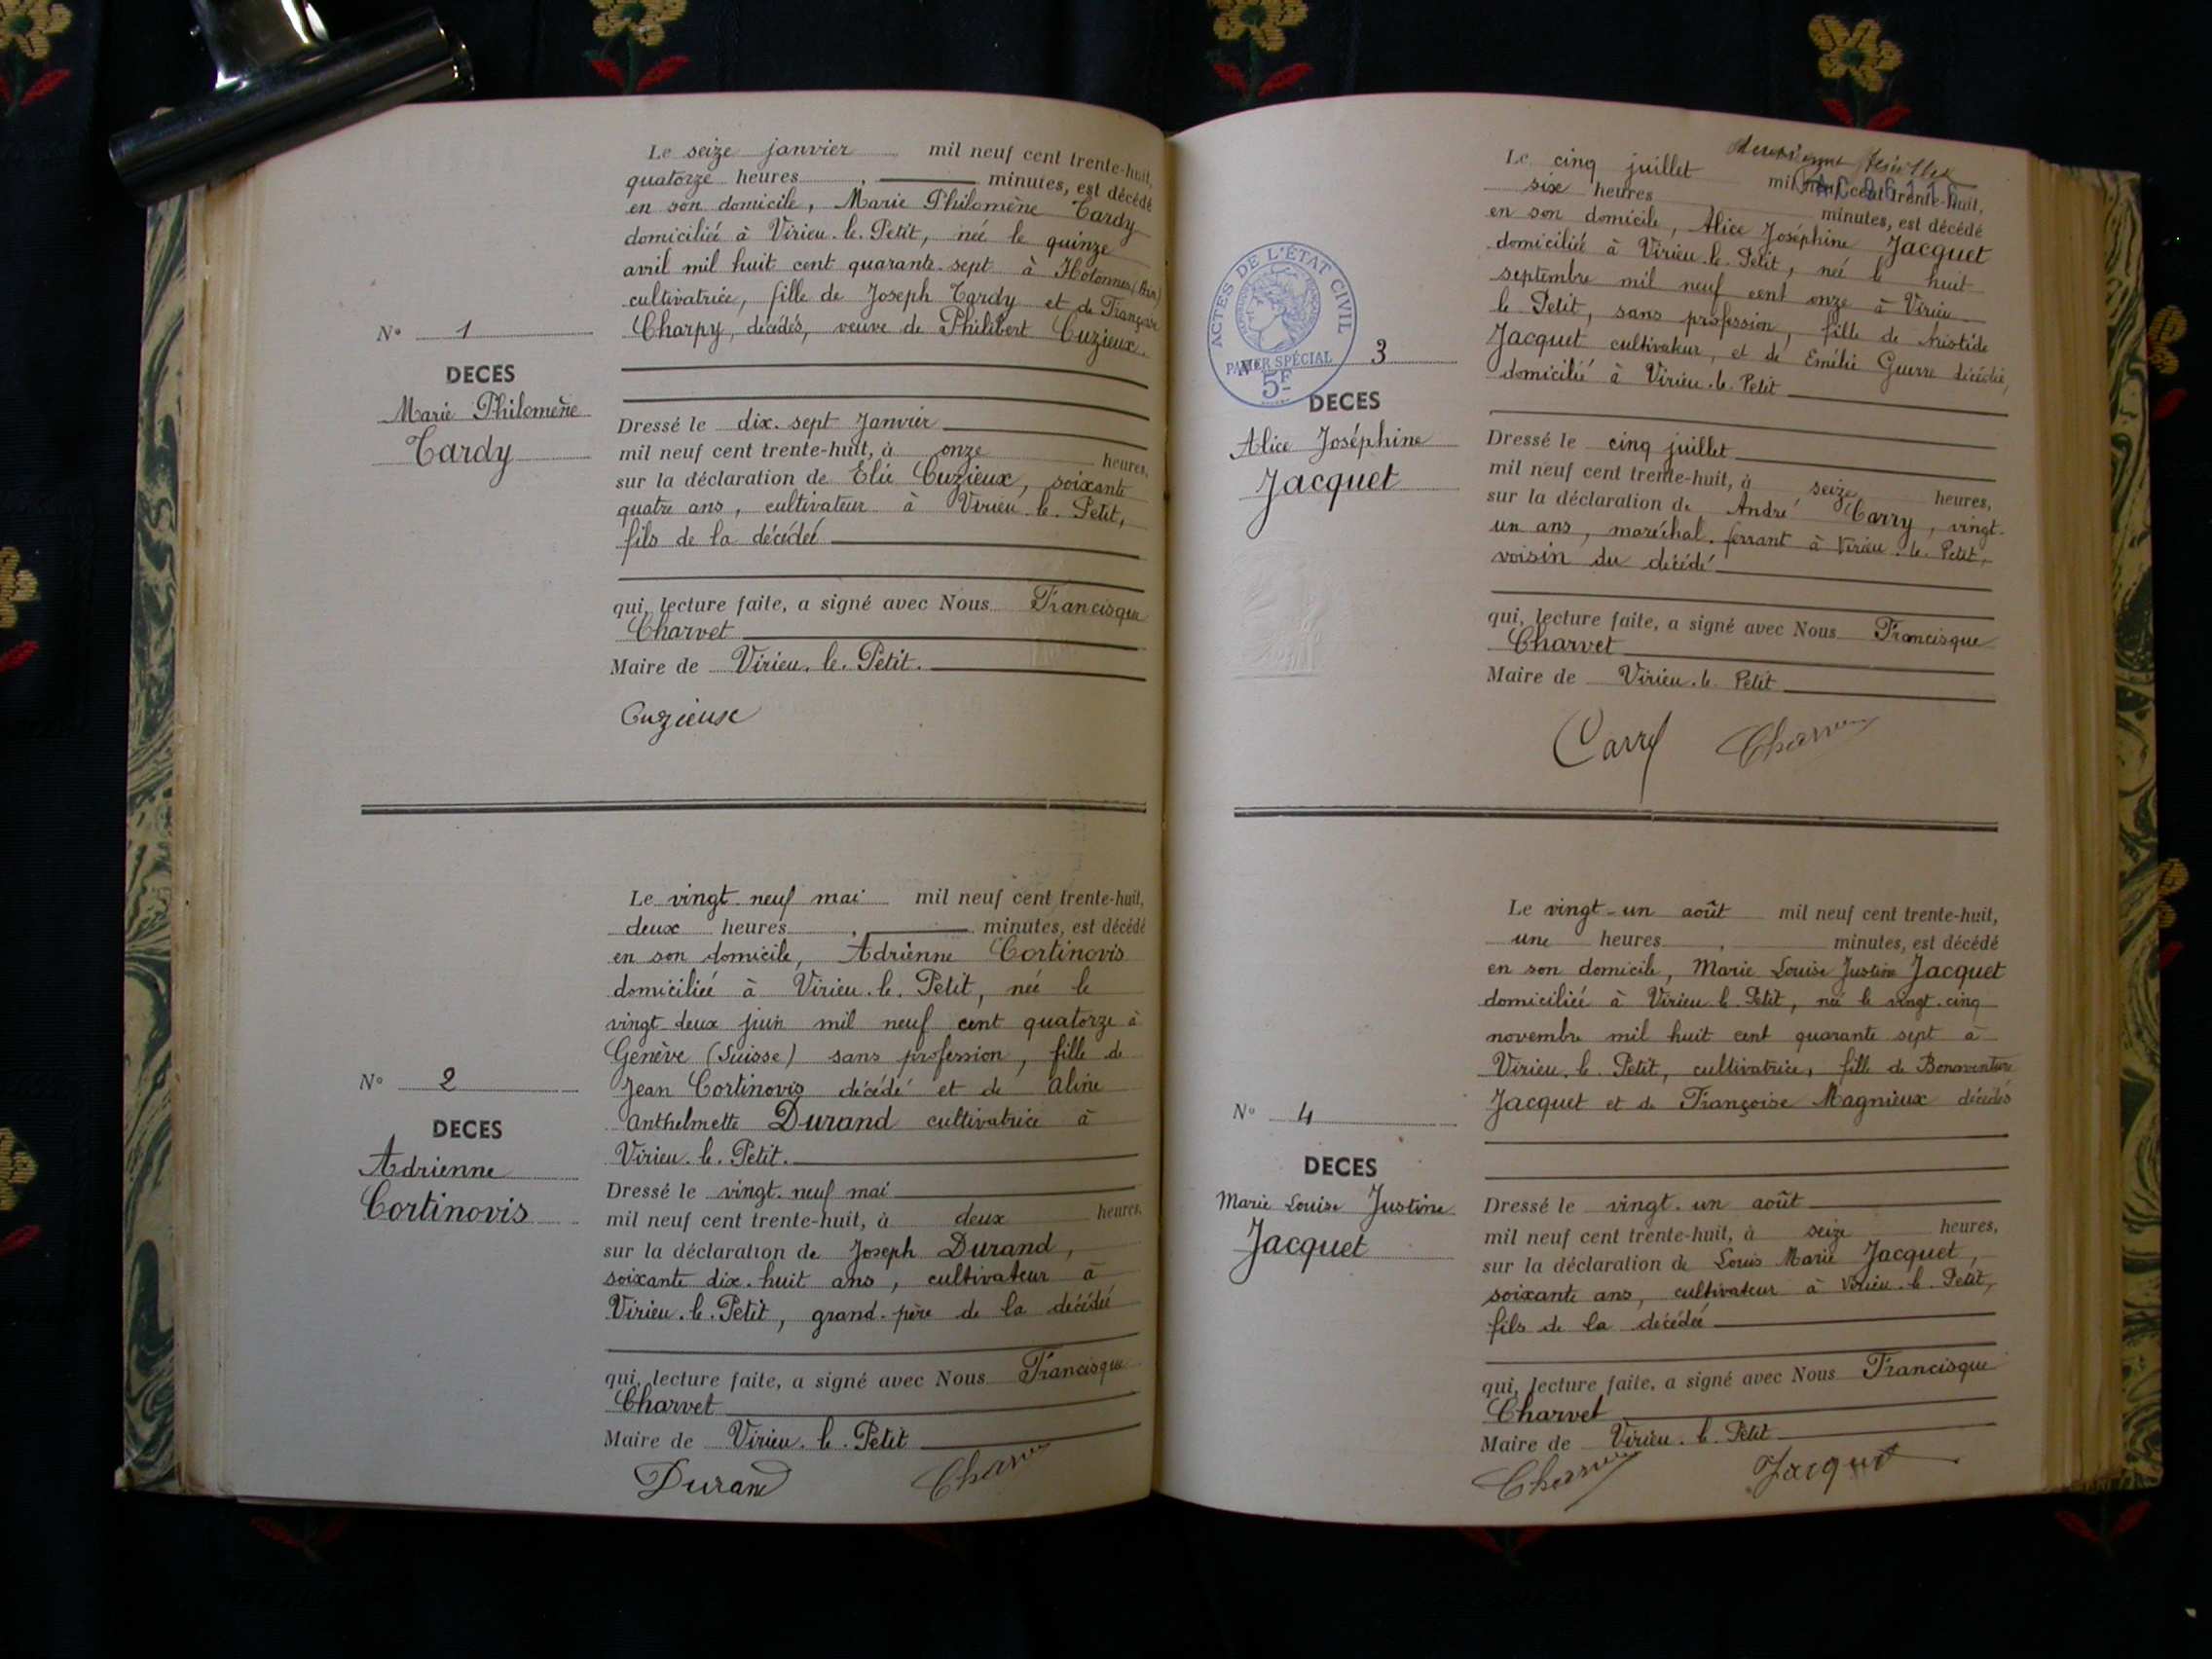 Le seize janvier mil neuf cent trente-huit,
quatorze heures , minutes, est décédé
en son domicile, Marie Philomène Tardy
domiciliée à Virieu-le-Petit, née le quinze
avril mil huit cent quarante-sept à Hotonnes (Ain)
cultivatrice, fille de Joseph Tardy et de Françoise
Charpy, décédés, veuve de Philibert Cuzieux.
N° 1
DECES
Marie Philomène
Tardy
Dressé le dix-sept Janvier
mil neuf cent trente-huit, à onze heures,
sur la déclaration de Elie Cuzieux, soixante
quatre ans, cultivateur à Virieu-le-Petit,
fils de la décédée
qui, lecture faite, a signé avec Nous Francisque
Charvet
Maire de Virieu-le-Petit.
Cuzieux
Le vingt neuf mai mil neuf cent trente-huit,
deux heures , minutes, est décédé
en son domicile, Adrienne Cortinovis
domiciliée à Virieu-le-Petit, née le
vingt-deux juin mil neuf cent quatorze à
Genève (Suisse) sans profession, fille de
Jean Cortinovis décédé et de Aline
Anthelmette Durand cultivatrice à
Virieu-le-Petit.
N° 2
DECES
Adrienne
Cortinovis
Dressé le vingt-neuf mai
mil neuf cent trente-huit, à deux heures,
sur la déclaration de Joseph Durand,
soixante dix-huit ans, cultivateur à
Virieu-le-Petit, grand-père de la décédée
qui, lecture faite, a signé avec Nous Francisque
Charvet
Maire de Virieu-le-Petit
Durand Charvet
deuxième feuillet
Le cinq juillet mil neuf cent trente-huit,
six heures minutes, est décédé
en son domicile, Alice Joséphine Jacquet
domiciliée à Virieu-le-Petit, née le huit
septembre mil neuf cent onze à Virieu
le Petit, sans profession, fille de Aristide
Jacquet cultivateur, et de Emélie Guerre décédée,
domicilié à Virieu-le-Petit
ACTES DE L'ÉTAT CIVIL
PAPIER SPÉCIAL
5F
N° 3
DECES
Alice Joséphine
Jacquet
Dressé le cinq juillet
mil neuf cent trente-huit, à seize heures,
sur la déclaration de André Carry, vingt-
un ans, maréchal-ferrant à Virieu-le-Petit,
voisin du décédé
qui, lecture faite, a signé avec Nous Francisque
Charvet
Maire de Virieu-le-Petit
Carry Charvet
Le vingt-un août mil neuf cent trente-huit,
une heures , minutes, est décédé
en son domicile, Marie Louise Justine Jacquet
domiciliée à Virieu-le-Petit, née le vingt-cinq
novembre mil huit cent quarante sept à
Virieu-le-Petit, cultivatrice, fille de Bonaventure
Jacquet et de Françoise Magnieux décédés
N° 4
DECES
Marie Louise Justine
Jacquet
Dressé le vingt-un août
mil neuf cent trente-huit, à seize heures,
sur la déclaration de Louis Marie Jacquet,
soixante ans, cultivateur à Virieu-le-Petit,
fils de la décédée
qui, lecture faite, a signé avec Nous Francisque
Charvet
Maire de Virieu-le-Petit
Charvet Jacquet